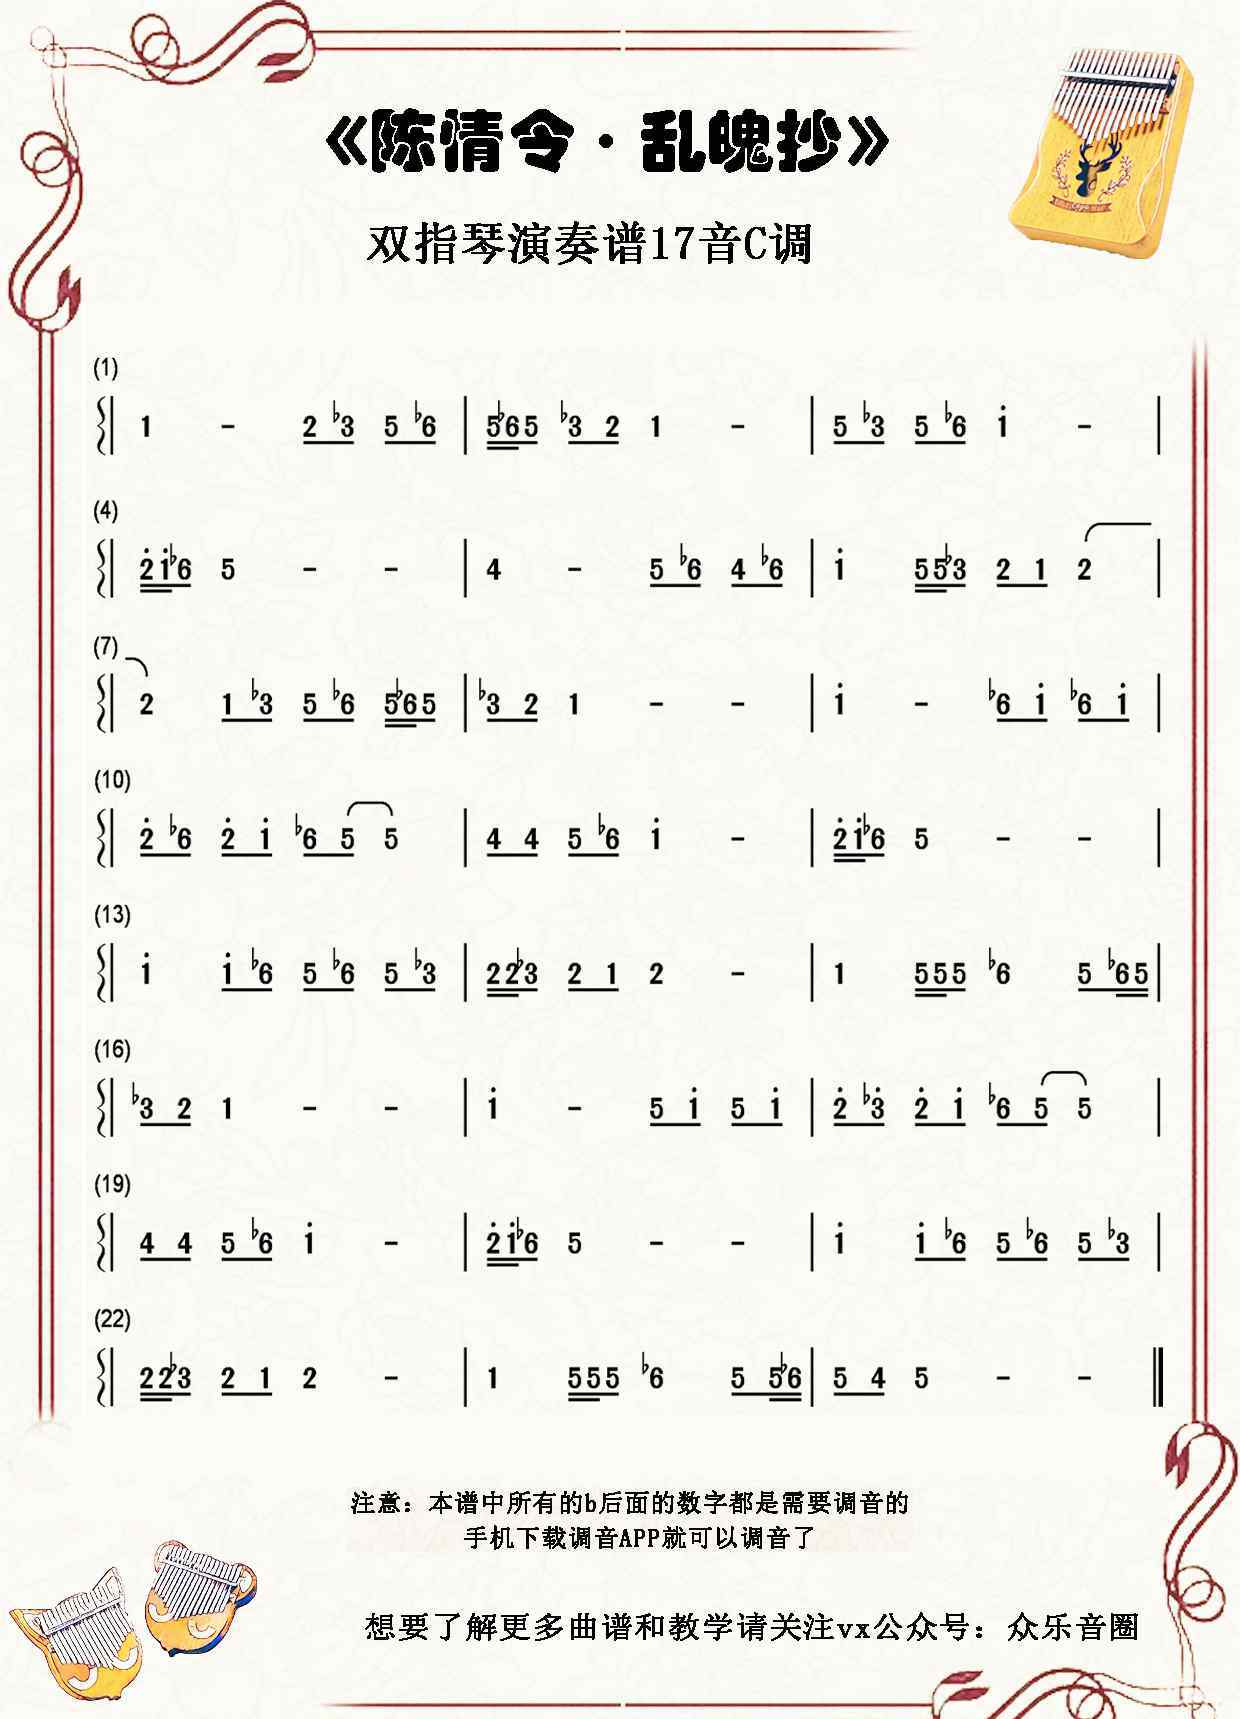 《陈情令·乱魄抄》
双指琴演奏谱17音C调
(1)
1 - 2 ♭3 5 ♭6 | 5♭65 ♭3 2 1 - | 5 ♭3 5 ♭6 i -  |
(4)
2̇i̇♭6 5 - - | 4 - 5 ♭6 4 ♭6 | i̇ 55♭3 2 1 2 |
(7)
2 1 ♭3 5 ♭6 5♭65 | ♭3 2 1 - - | i̇ - ♭6 i̇ ♭6 i̇ |
(10)
2̇ ♭6 2̇ i̇ ♭6 5 5 | 4 4 5 ♭6 i̇ - | 2̇i̇♭6 5 - - |
(13)
i̇ i̇ ♭6 5 ♭6 5 ♭3 | 22♭3 2 1 2 - | 1 555 ♭6 5 ♭65 |
(16)
♭3 2 1 - - | i̇ - 5 i̇ 5 i̇ | 2̇ ♭3̇ 2̇ i̇ ♭6 5 5 |
(19)
4 4 5 ♭6 i̇ - | 2̇i̇♭6 5 - - | i̇ i̇ ♭6 5 ♭6 5 ♭3 |
(22)
22♭3 2 1 2 - | 1 555 ♭6 5 5♭6 | 5 4 5 - - ‖
注意：本谱中所有的b后面的数字都是需要调音的
手机下载调音APP就可以调音了
想要了解更多曲谱和教学请关注vx公众号：众乐音圈